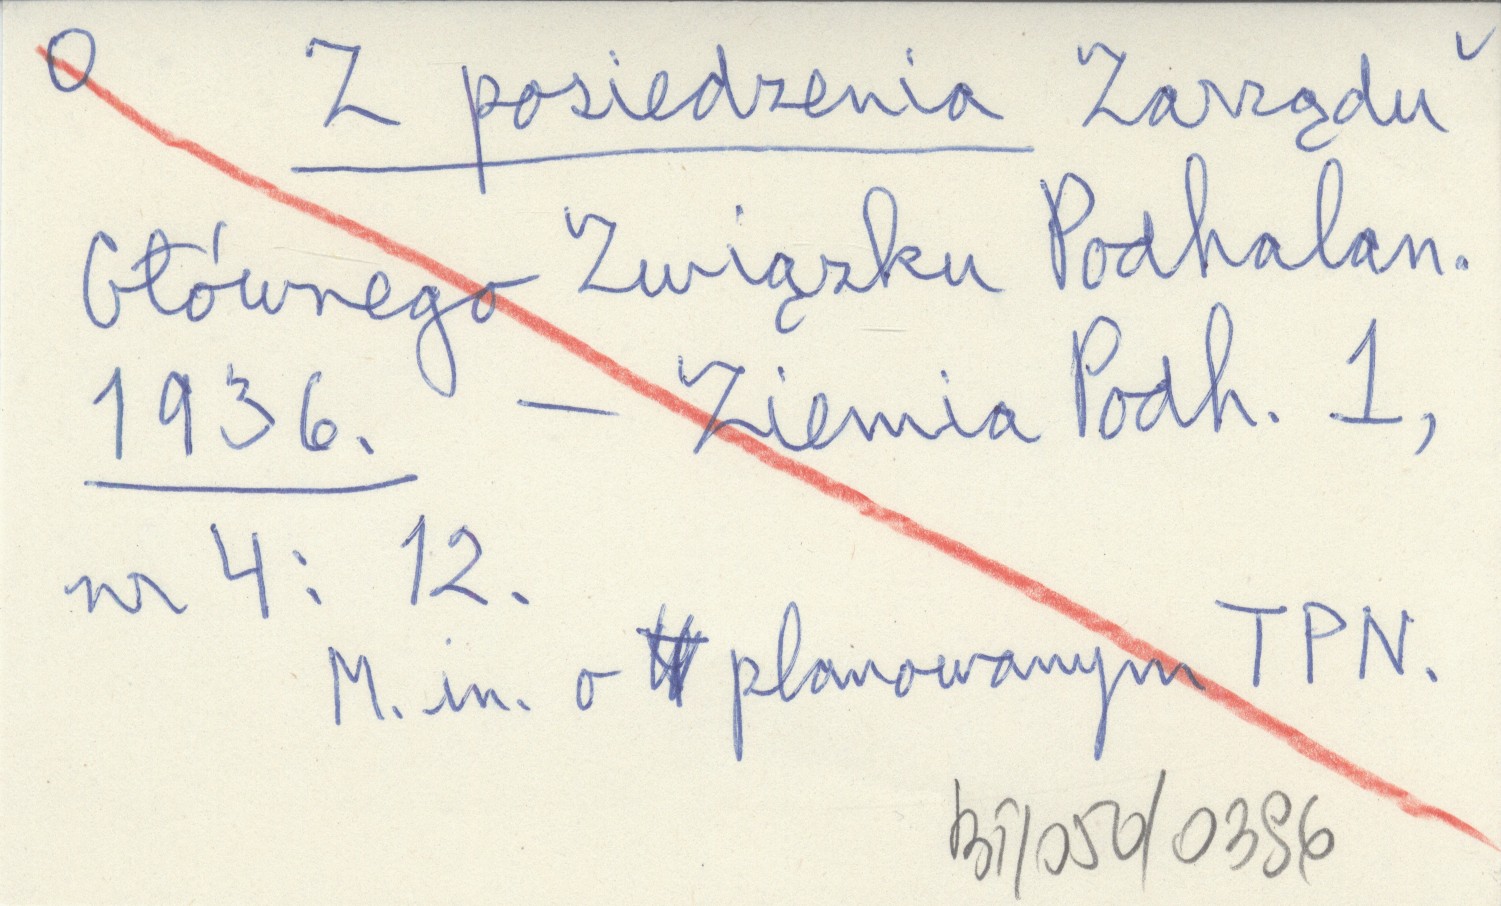 O Z posiedzenia Zarządu
Głównego Związku Podhalan.
1936. — Ziemia Podh. 1,
nr 4: 12.
M. in. o planowanym TPN.
BI/050/0386